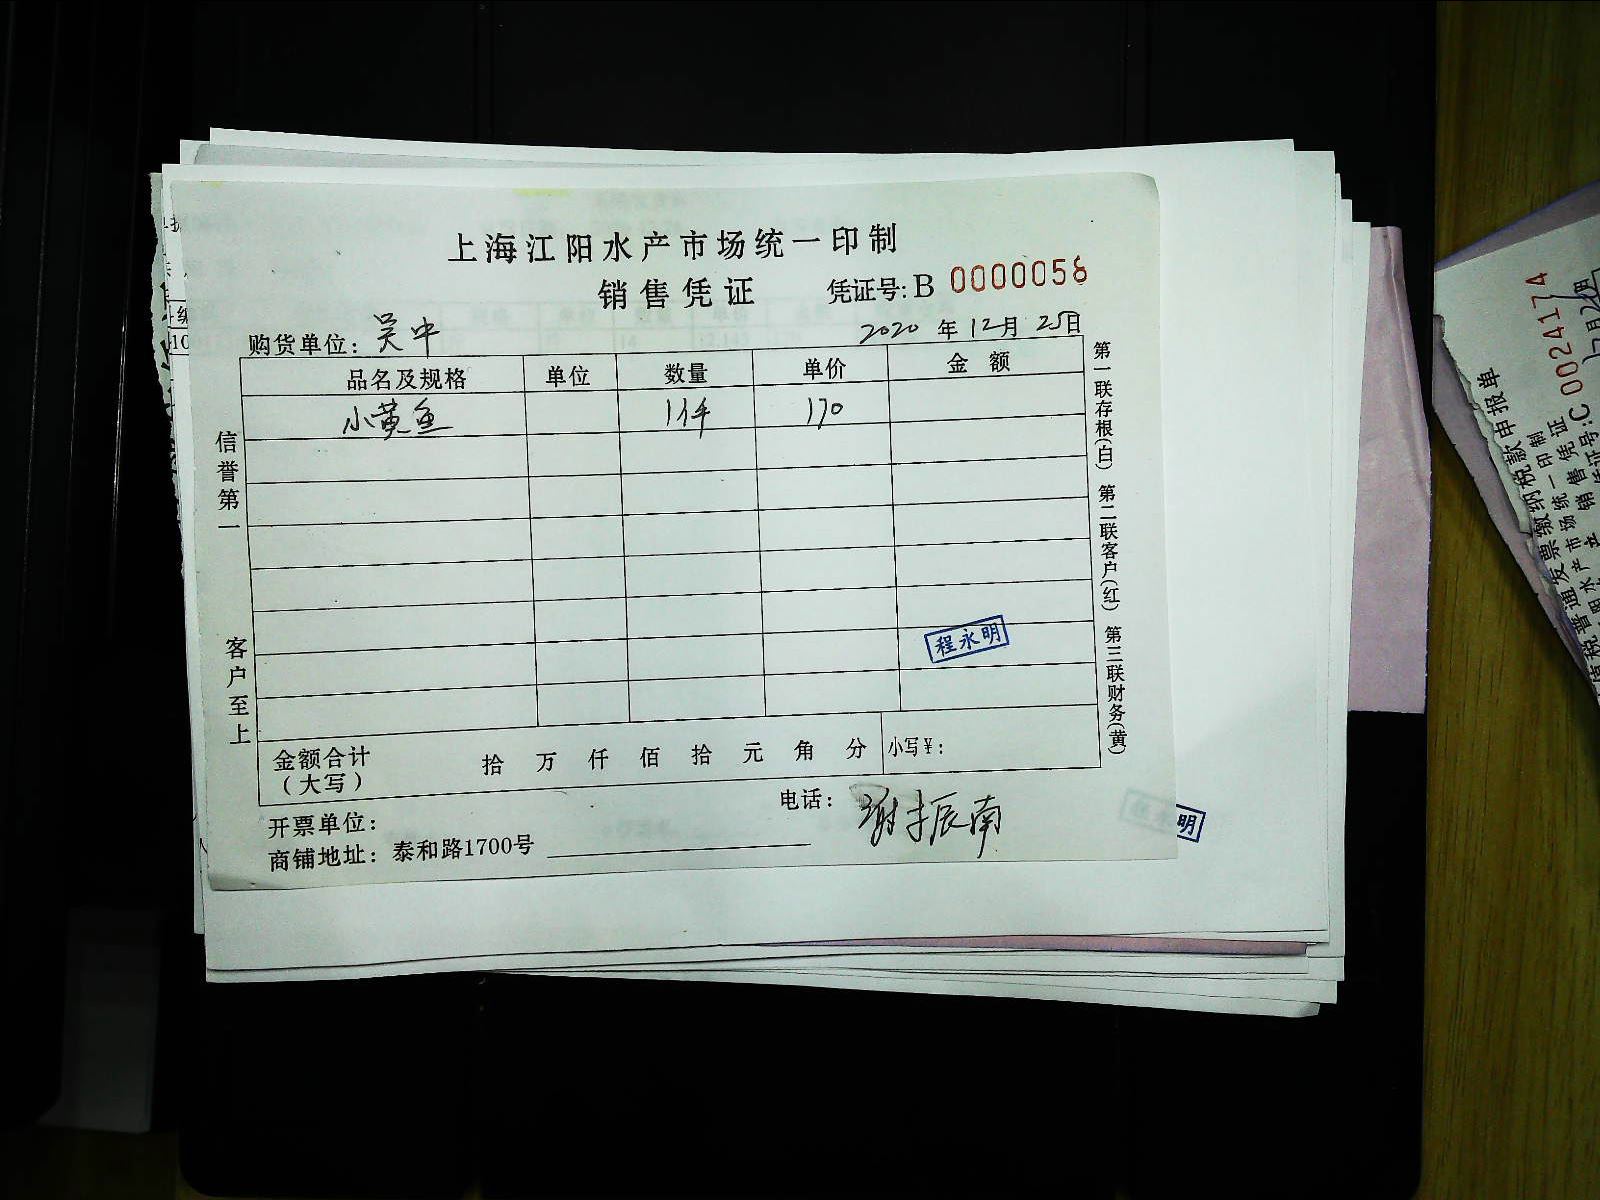 上海江阳水产市场统一印制
销售凭证 凭证号:B 0000056
购货单位: 吴中 2020 年 12 月 25 日
品名及规格 单位 数量 单价 金额
小黄鱼 1件 170
信誉第一
客户至上
第一联存根(白) 第二联客户(红) 第三联财务(黄)
程永明
金额合计 拾 万 仟 佰 拾 元 角 分 小写¥:
(大写)
开票单位: 电话: 谢振南
商铺地址: 泰和路1700号
明
10
申报单
普通发票缴纳税款
水产市场统一印制
销售凭证
证号:C 0024174